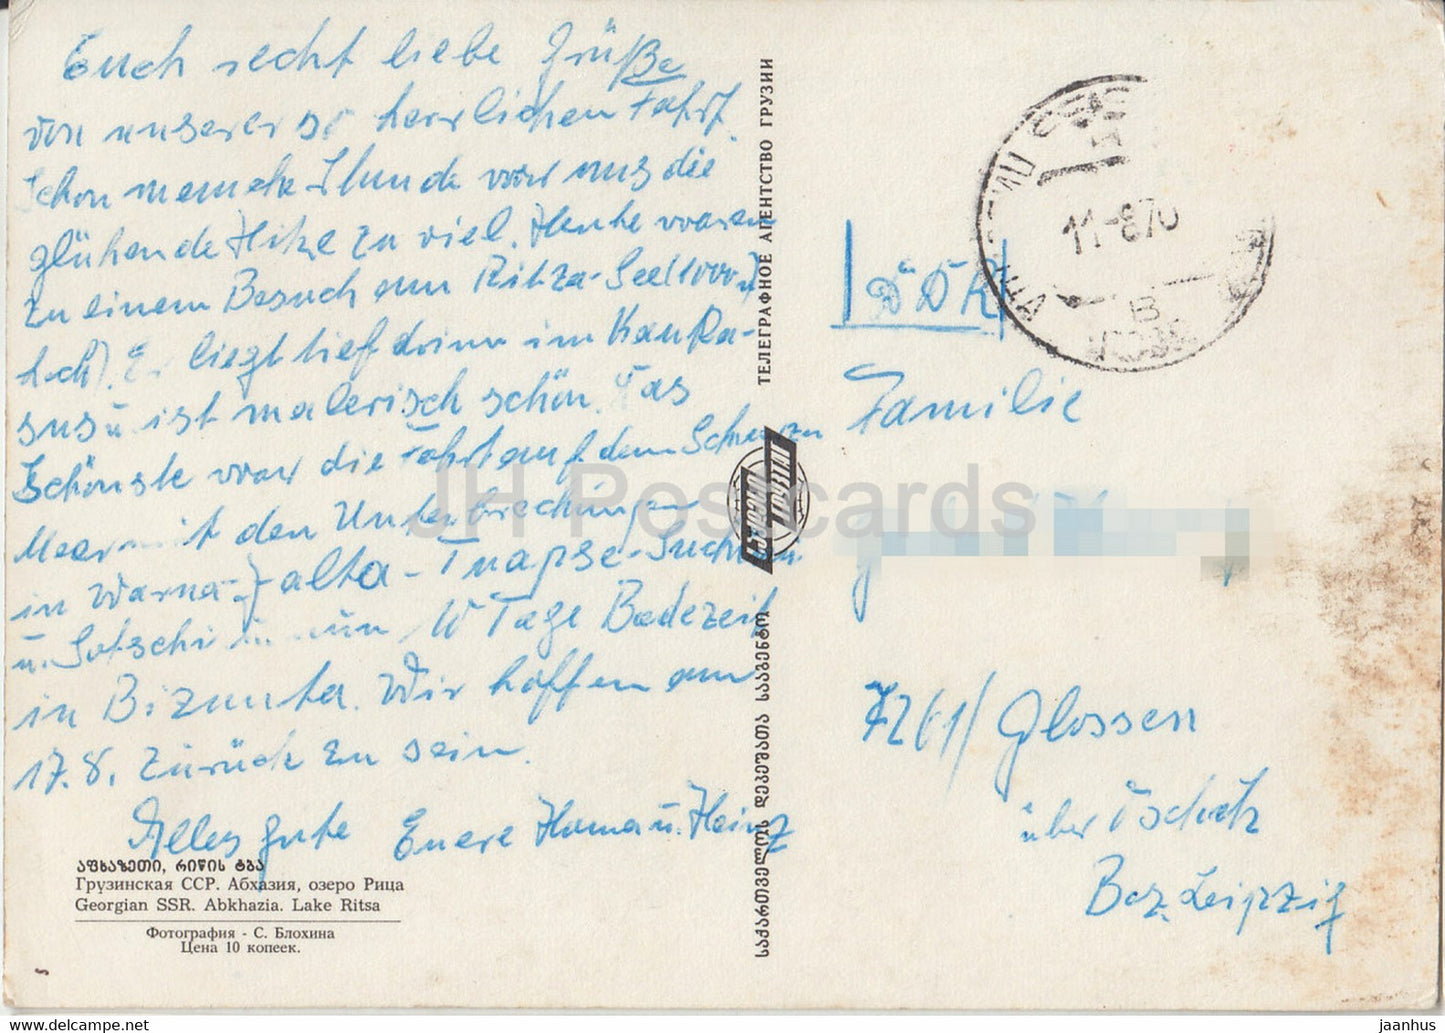 Euch recht liebe Grüße
von unserer so herrlichen Fahrt.
Schon manche Stunde war uns die
glühende Hitze zu viel. Heute waren
zu einem Besuch am Ritza-See (1000 m
hoch). Er liegt tief drinn im Kauka-
sus u. ist malerisch schön. Das
Schönste war die Fahrt auf dem Schwarzen
Meer mit den Unterbrechungen
in Warna-Jalta-Tuapse-Suchumi
u. Sotschi nun 10 Tage Badezeit
in Bizunta. Wir hoffen am
17.8. zurück zu sein.
Alles gute Euere Hanna u. Heinz
აფხაზეთი, რიწის ტბა
Грузинская ССР. Абхазия, озеро Рица
Georgian SSR. Abkhazia. Lake Ritsa
Фотография - С. Блохина
Цена 10 копеек.
ТЕЛЕГРАФНОЕ АГЕНТСТВО ГРУЗИИ
საქართველოს დეპეშათა სააგენტო
JH Postcards
11-870
В
DDR
Familie
7261/Glossen
über Oschatz
Bez. Leipzig
www.hippostcard.com
jaanhus